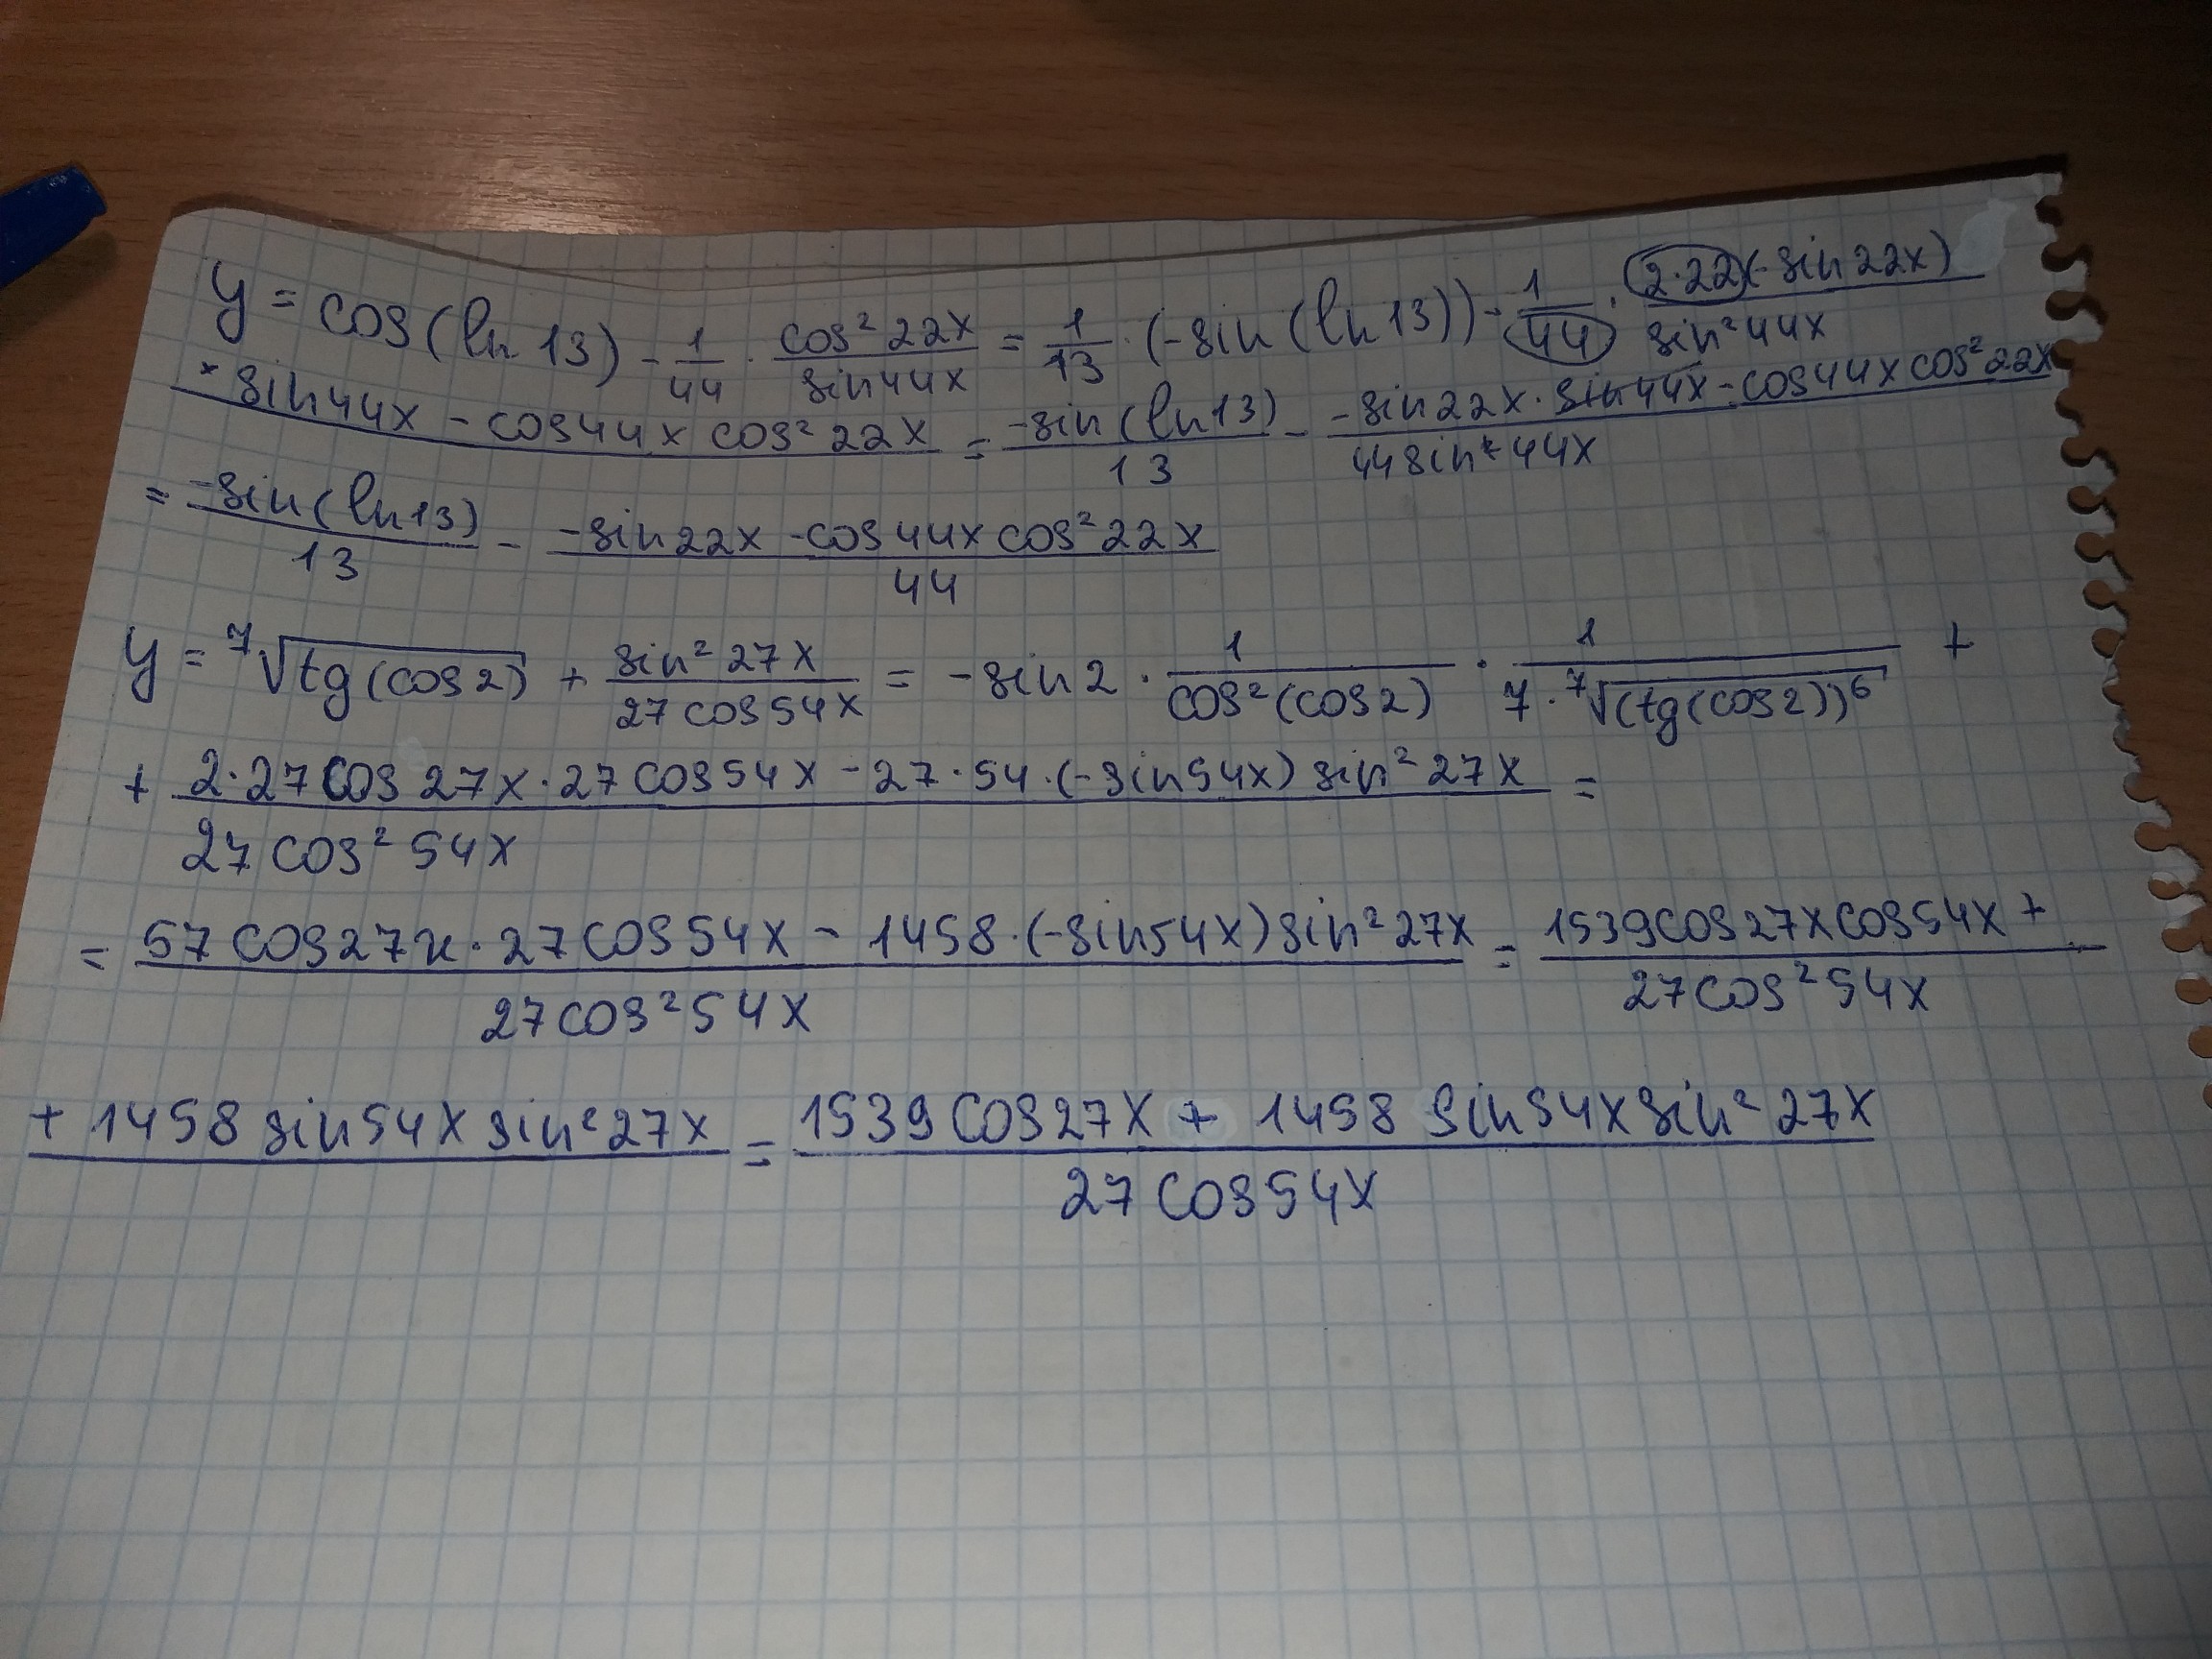 y = cos(ln 13) - 1/44 · cos² 22x / sin 44x = 1/13 · (-sin(ln 13)) - 1/44 · 2·22(-sin 22x) / sin² 44x
× sin 44x - cos 44x cos² 22x = -sin(ln 13) / 13 - -sin 22x · sin 44x - cos 44x cos² 22x / 44 sin² 44x
= -sin(ln 13) / 13 - -sin 22x - cos 44x cos² 22x / 44
y = ⁷√tg(cos 2) + sin² 27x / 27 cos 54x = -sin 2 · 1 / cos²(cos 2) · 1 / 7 · ⁷√(tg(cos 2))⁶ +
+ 2·27 cos 27x · 27 cos 54x - 27·54·(-sin 54x) sin² 27x / 27 cos² 54x =
= 57 cos 27x · 27 cos 54x - 1458·(-sin 54x) sin² 27x / 27 cos² 54x = 1539 cos 27x cos 54x + / 27 cos² 54x
+ 1458 sin 54x sin² 27x = 1539 cos 27x + 1458 sin 54x sin² 27x / 27 cos 54x